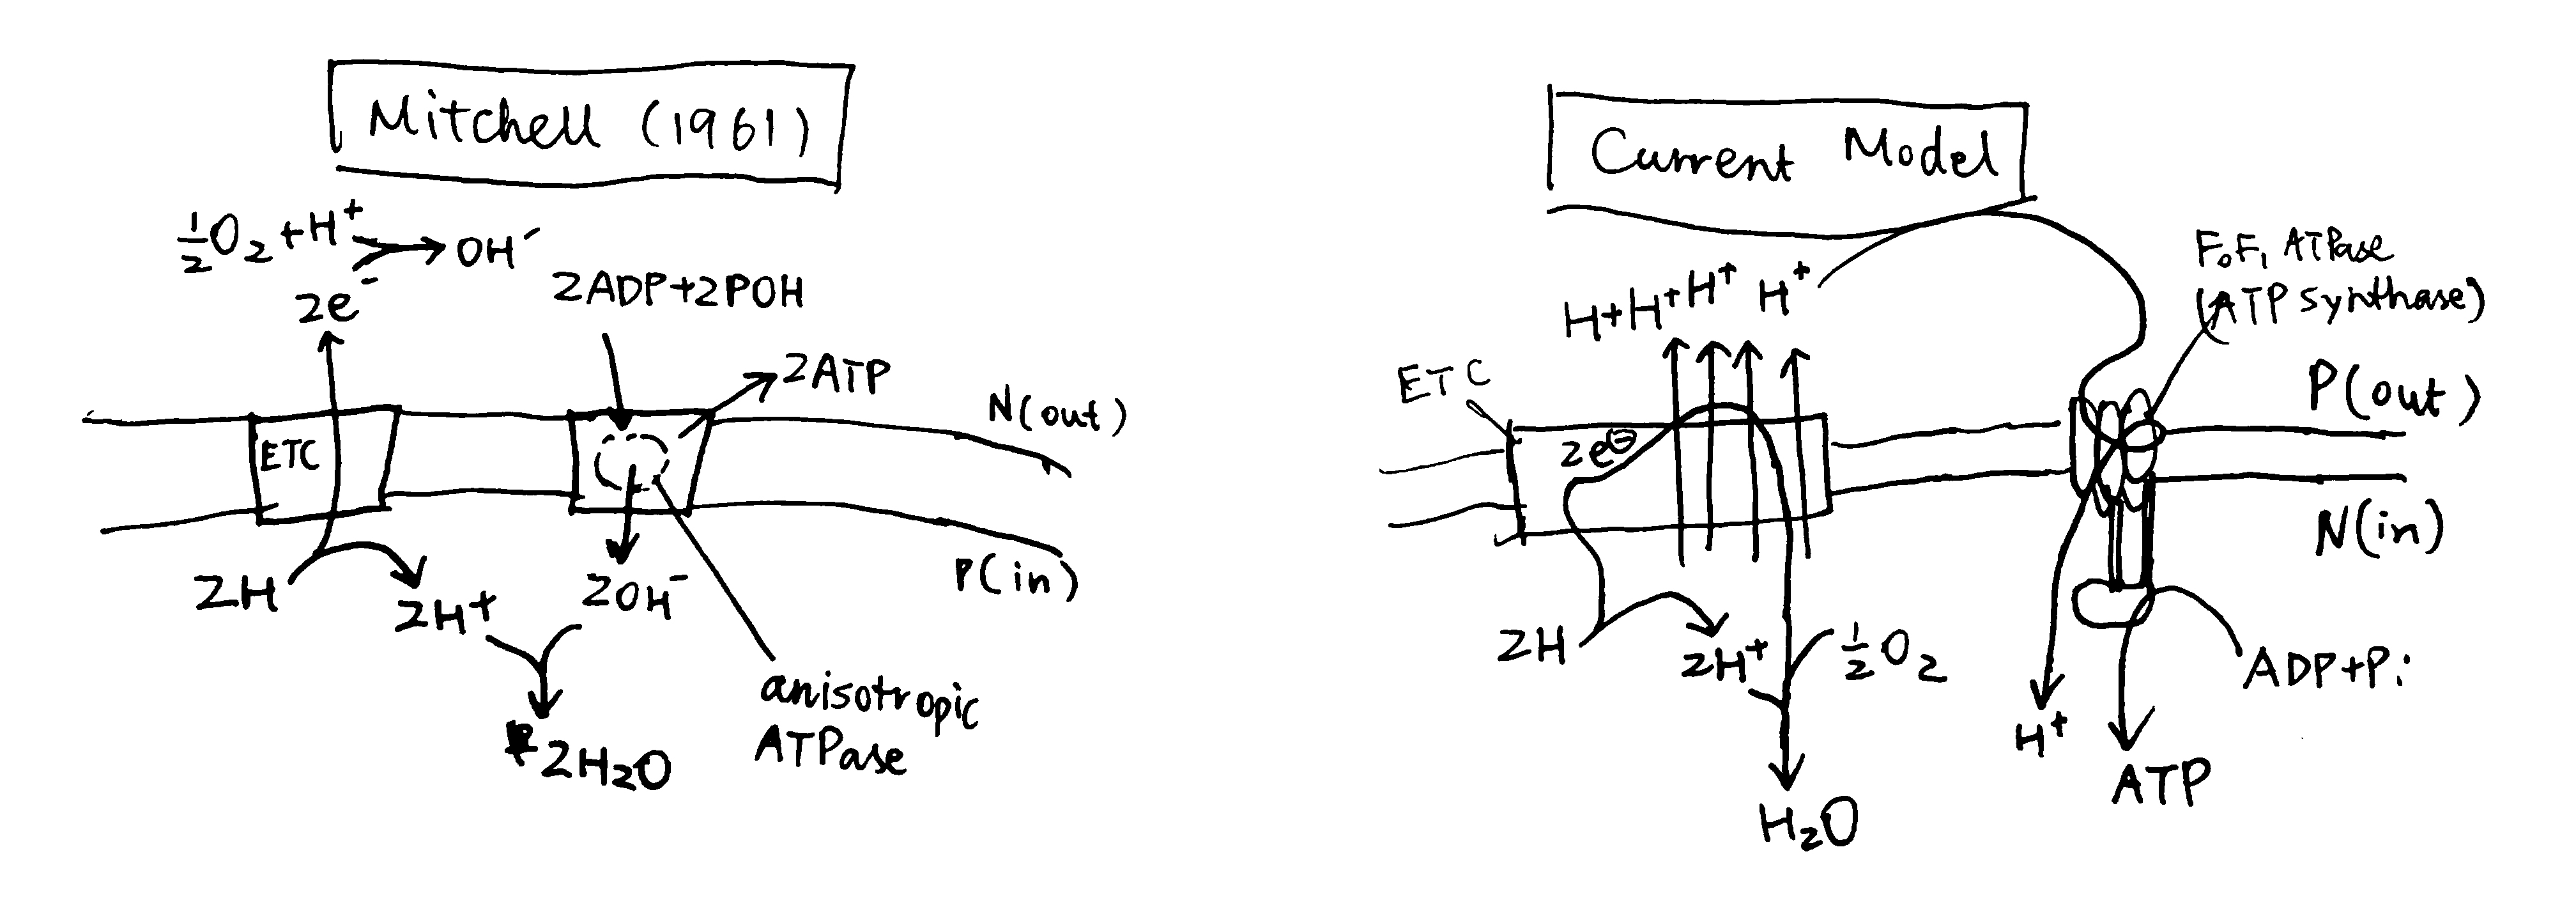 Mitchell (1961)
½O₂ + H⁺ → OH⁻
2e⁻
2ADP+2POH
2ATP
N(out)
ETC
P(in)
2H
2H+
2OH⁻
2H₂O
anisotropic
ATPase
Current Model
H+H+H⁺ H⁺
F₀F₁ ATPase
(ATP synthase)
ETC
P(out)
2e⊖
N(in)
2H
2H⁺
½O₂
ADP+Pi
H⁺
ATP
H₂O